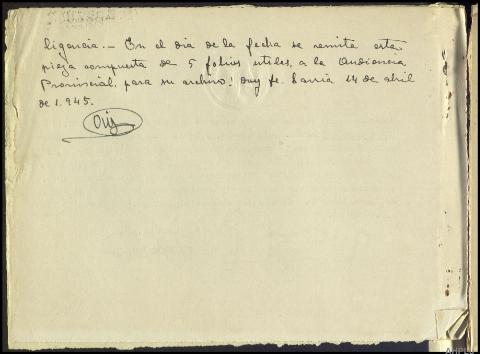 ligencia.— En el dia de la fecha se remite esta
pieza compuesta de 5 folios utiles, a la Audiencia
Provincial, para su archivo; doy fe. Sarria 14 de abril
de 1.945.